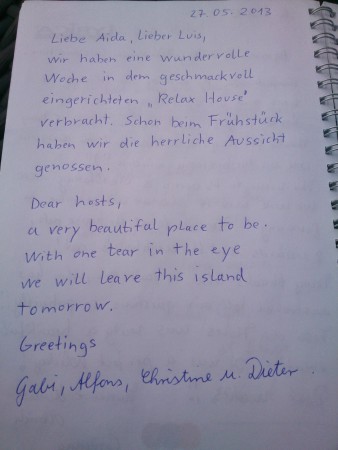 27.05.2013
Liebe Aida, Lieber Luis,
wir haben eine wundervolle
Woche in dem geschmackvoll
eingerichteten „Relax House"
verbracht. Schon beim Frühstück
haben wir die herrliche Aussicht
genossen.
Dear hosts,
a very beautiful place to be.
With one tear in the eye
we will leave this island
tomorrow.
Greetings
Gabi, Alfons, Christine u. Dieter.